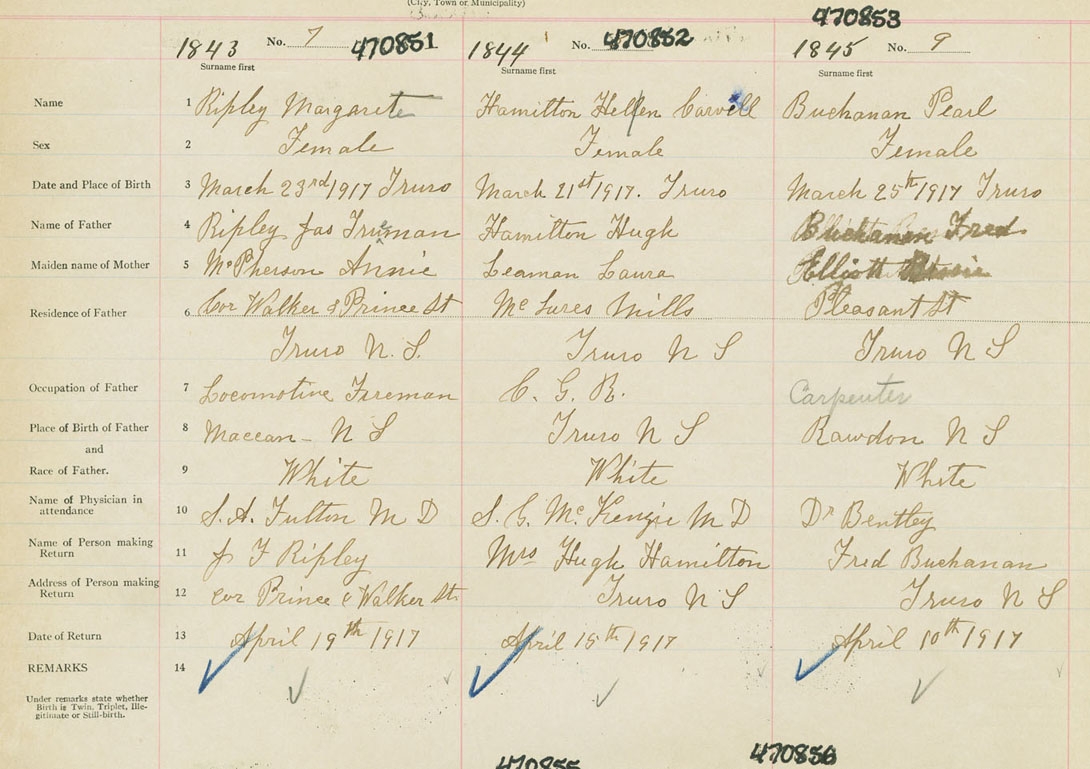 (City, Town or Municipality)
470853
1843 No. 7 470851 1844 No. 470852 1845 No. 9
Surname first Surname first Surname first
Name 1 Ripley Margarete Hamilton Hellen Carvell Buchanan Pearl
Sex 2 Female Female Female
Date and Place of Birth 3 March 23rd 1917 Truro March 21st 1917. Truro March 25th 1917 Truro
Name of Father 4 Ripley Jas Trueman Hamilton Hugh Buchanan Fred
Maiden name of Mother 5 McPherson Annie Leaman Laura Elliott
Residence of Father 6 Cor Walker & Prince St McLures Mills Pleasant St
Truro N. S. Truro N S Truro N S
Occupation of Father 7 Locomotive Fireman C. G. R. Carpenter
Place of Birth of Father 8 Maccan - N S Truro N S Rawdon N S
and
Race of Father. 9 White White White
Name of Physician in
attendance 10 S. A. Fulton M D S. G. McKenzie M D Dr Bentley
Name of Person making
Return 11 J F Ripley Mrs Hugh Hamilton Fred Buchanan
Address of Person making
Return 12 cor Prince & Walker St. Truro N S Truro N S
Date of Return 13 April 19th 1917 April 15th 1917 April 10th 1917
REMARKS 14
Under remarks state whether
Birth is Twin, Triplet, Ille-
gitimate or Still-birth.
470855 470856